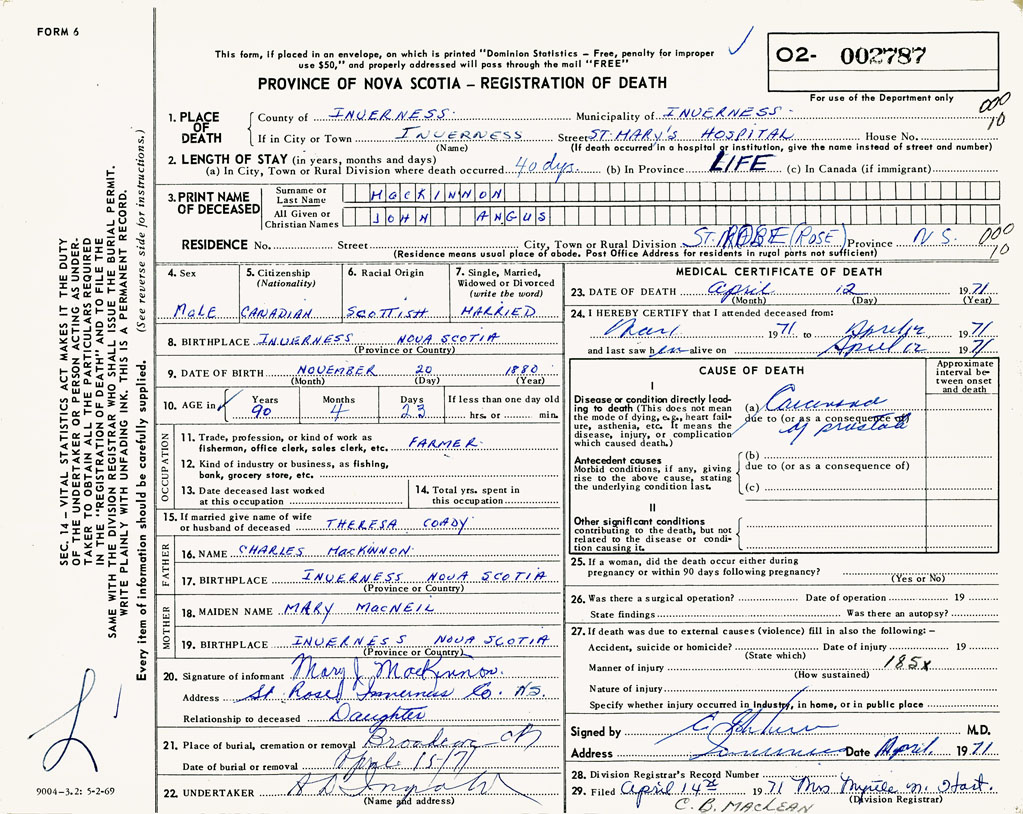 FORM 6
This form, if placed in an envelope, on which is printed "Dominion Statistics – Free, penalty for improper
use $50," and properly addressed will pass through the mail "FREE"
O2- 002787
PROVINCE OF NOVA SCOTIA – REGISTRATION OF DEATH
For use of the Department only
000
10
1. PLACE OF DEATH
County of INVERNESS. Municipality of INVERNESS.
If in City or Town INVERNESS Street ST. MARY'S HOSPITAL House No.
(Name) (If death occurred in a hospital or institution, give the name instead of street and number)
2. LENGTH OF STAY (in years, months and days)
(a) In City, Town or Rural Division where death occurred 40 dys. (b) In Province LIFE (c) In Canada (if immigrant)
3. PRINT NAME OF DECEASED
Surname or Last Name MacKINNON
All Given or Christian Names JOHN ANGUS
RESIDENCE No. Street City, Town or Rural Division ST. ROSE (ROSE) Province N.S. 000
10
(Residence means usual place of abode. Post Office Address for residents in rural parts not sufficient)
4. Sex
MaLE
5. Citizenship
(Nationality)
CANADIAN
6. Racial Origin
SCOTTISH
7. Single, Married,
Widowed or Divorced
(write the word)
MARRIED
8. BIRTHPLACE INVERNESS NOVA SCOTIA
(Province or Country)
9. DATE OF BIRTH NOVEMBER 20 1880
(Month) (Day) (Year)
10. AGE in Years Months Days If less than one day old
90 4 23 hrs. or min.
OCCUPATION
11. Trade, profession, or kind of work as
fisherman, office clerk, sales clerk, etc. FARMER.
12. Kind of industry or business, as fishing,
bank, grocery store, etc.
13. Date deceased last worked
at this occupation
14. Total yrs. spent in
this occupation
15. If married give name of wife
or husband of deceased THERESA COADY
FATHER
16. NAME CHARLES MacKINNON.
17. BIRTHPLACE INVERNESS NOVA SCOTIA
(Province or Country)
MOTHER
18. MAIDEN NAME MARY MacNEIL
19. BIRTHPLACE INVERNESS NOVA SCOTIA
(Province or Country)
20. Signature of informant Mary J. MacKinnon.
Address St. Rose, Inverness Co. N.S.
Relationship to deceased Daughter
21. Place of burial, cremation or removal
Date of burial or removal April 15-/71
22. UNDERTAKER
(Name and address)
MEDICAL CERTIFICATE OF DEATH
23. DATE OF DEATH April 12 1971
(Month) (Day) (Year)
24. I HEREBY CERTIFY that I attended deceased from:
Mar 1971 to April 12 1971
and last saw him alive on April 12 1971
CAUSE OF DEATH
Approximate
interval be-
tween onset
and death
I
Disease or condition directly lead-
ing to death (This does not mean
the mode of dying, e.g., heart fail-
ure, asthenia, etc. It means the
disease, injury, or complication
which caused death.)
(a) Carcinoma
due to (or as a consequence of)
of prostate
Antecedent causes
Morbid conditions, if any, giving
rise to the above cause, stating
the underlying condition last.
(b)
due to (or as a consequence of)
(c)
II
Other significant conditions
contributing to the death, but not
related to the disease or condi-
tion causing it.
25. If a woman, did the death occur either during
pregnancy or within 90 days following pregnancy?
(Yes or No)
26. Was there a surgical operation? Date of operation 19
State findings Was there an autopsy?
27. If death was due to external causes (violence) fill in also the following: –
Accident, suicide or homicide? Date of injury 19
(State which)
Manner of injury 185x
(How sustained)
Nature of injury
Specify whether injury occurred in industry, in home, or in public place
Signed by M.D.
Address Date April 1971
28. Division Registrar's Record Number
29. Filed April 14th 1971 Mrs Myrtle M. Hart.
(Division Registrar)
C. B. MACLEAN
SEC. 14 – VITAL STATISTICS ACT MAKES IT THE DUTY
OF THE UNDERTAKER OR PERSON ACTING AS UNDER-
TAKER TO OBTAIN ALL THE PARTICULARS REQUIRED
IN THE "REGISTRATION OF DEATH" AND TO FILE THE
SAME WITH THE DIVISION REGISTRAR WHO SHALL ISSUE THE BURIAL PERMIT.
WRITE PLAINLY WITH UNFADING INK. THIS IS A PERMANENT RECORD.
Every item of information should be carefully supplied. (See reverse side for instructions.)
9004-3.2: 5-2-69